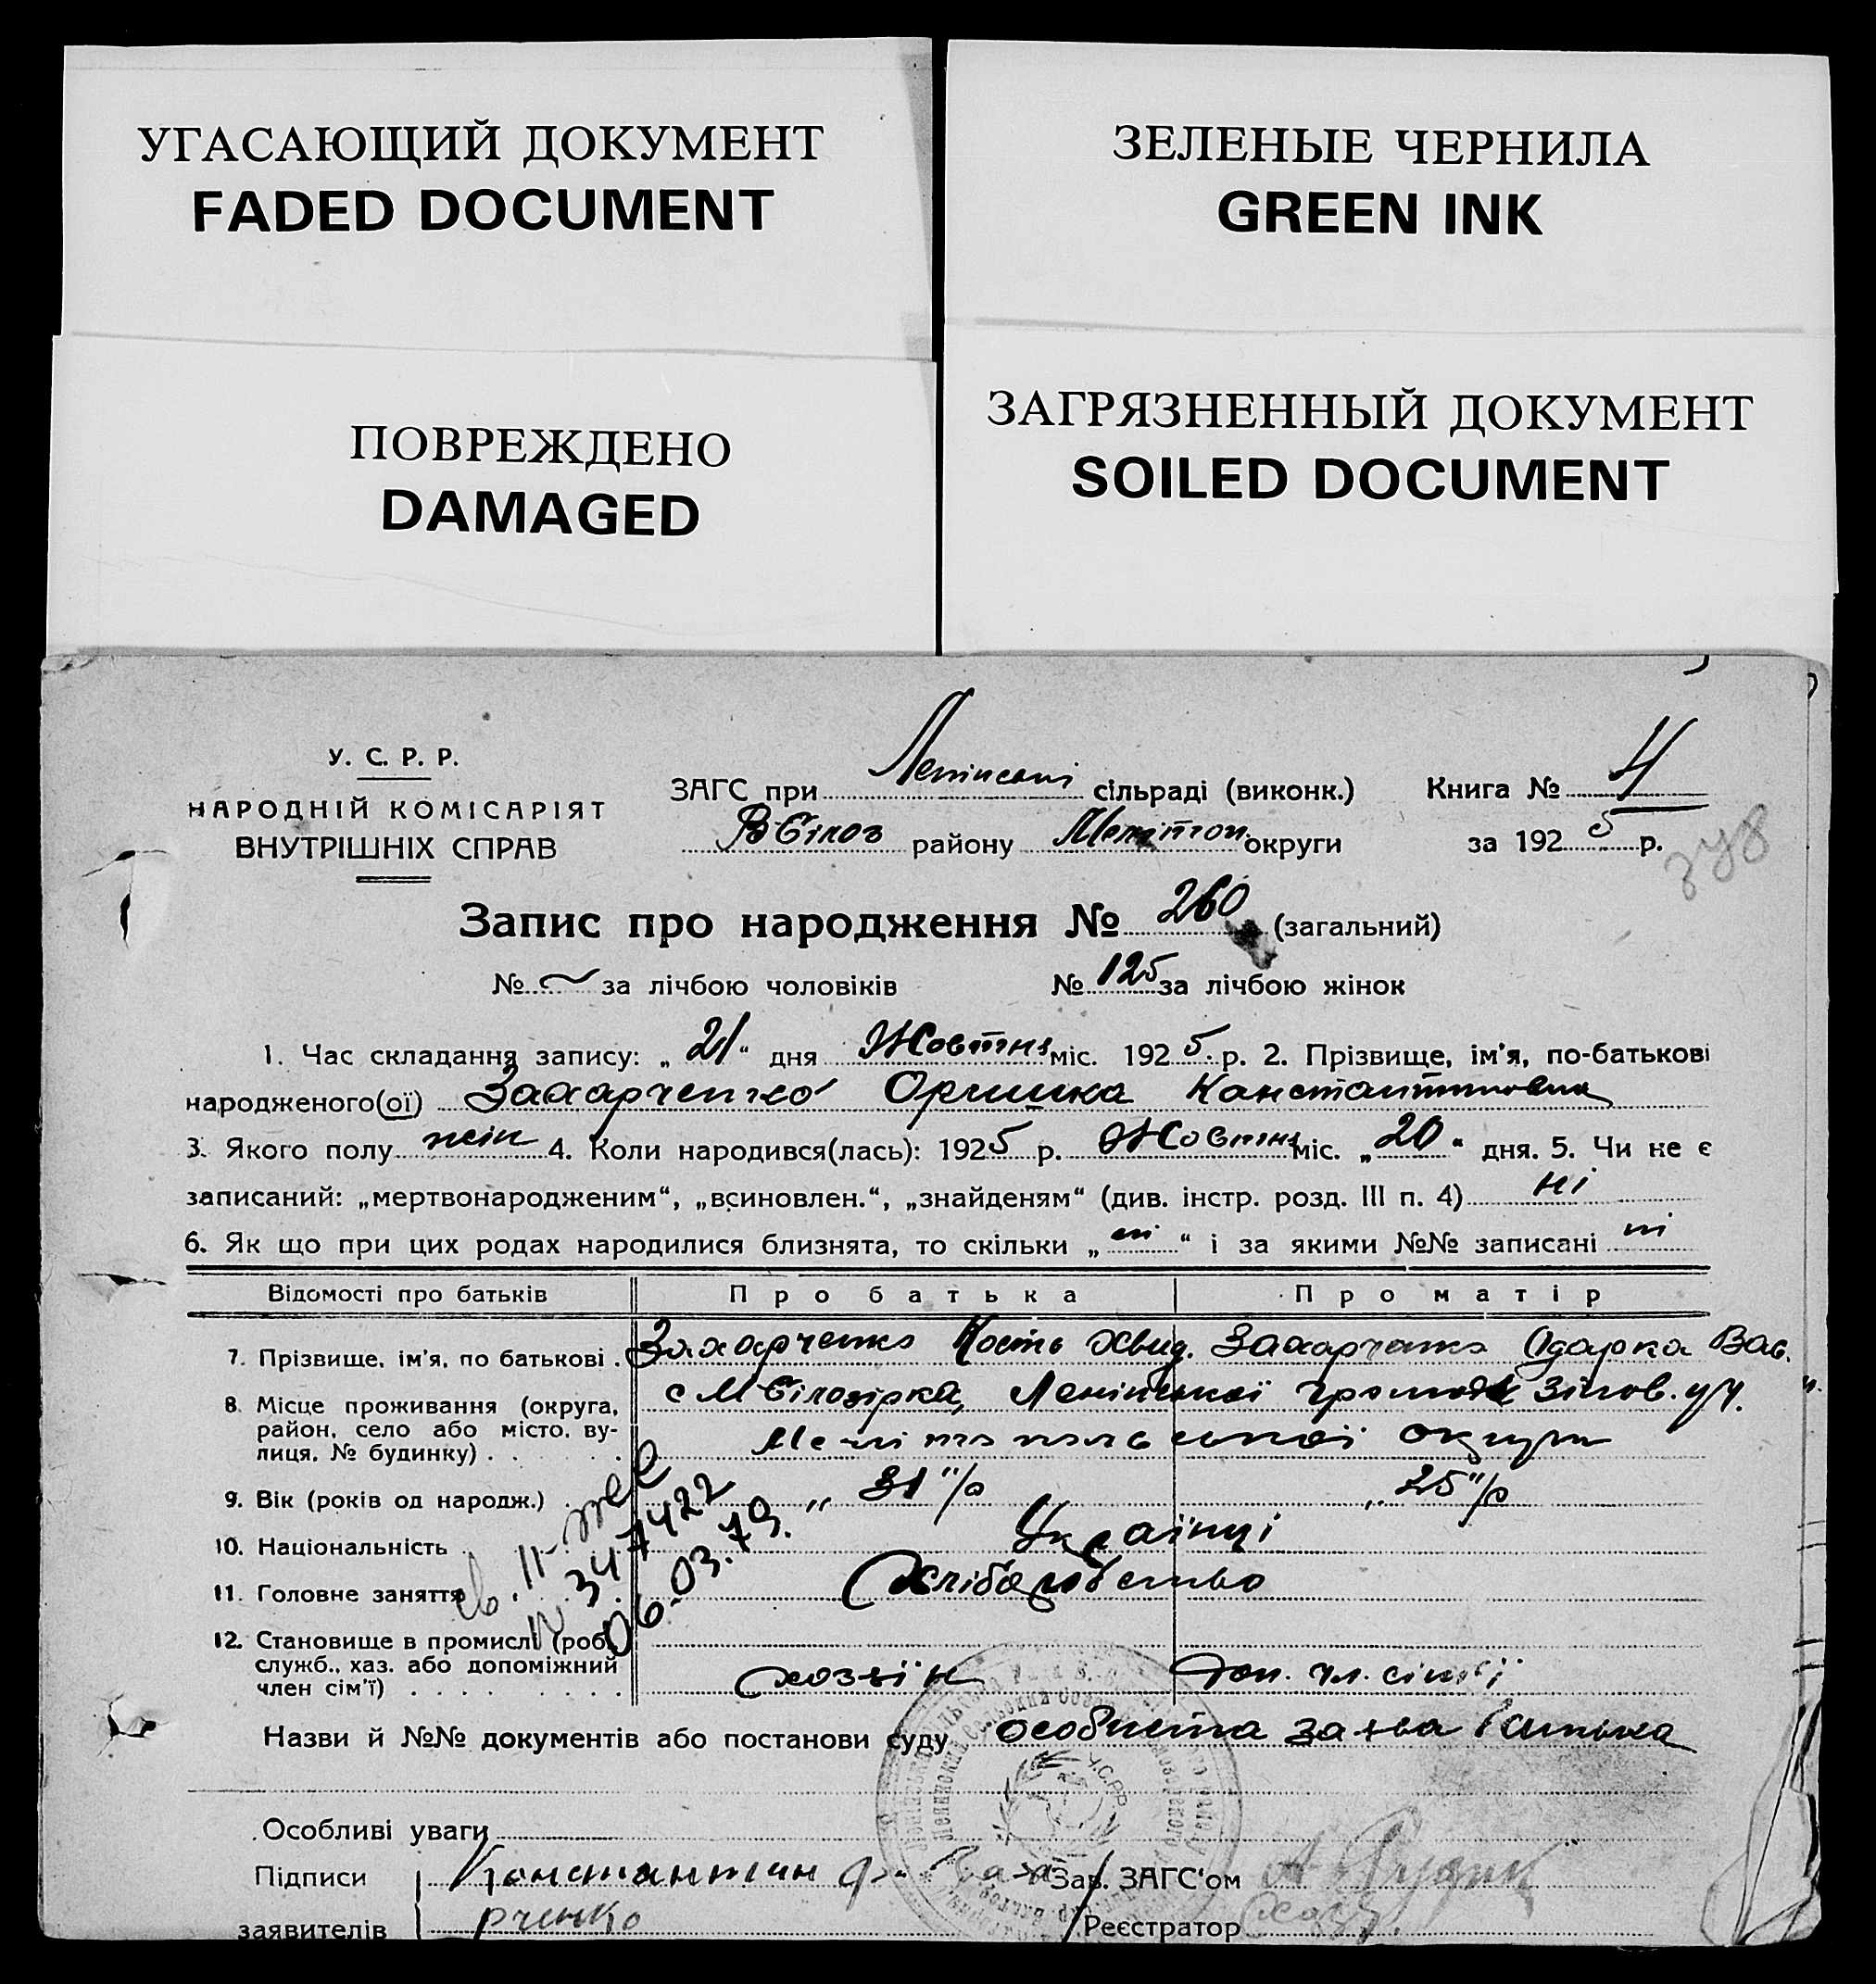 УГАСАЮЩИЙ ДОКУМЕНТ
FADED DOCUMENT
ЗЕЛЕНЫЕ ЧЕРНИЛА
GREEN INK
ПОВРЕЖДЕНО
DAMAGED
ЗАГРЯЗНЕННЫЙ ДОКУМЕНТ
SOILED DOCUMENT
У. С. Р. Р.
НАРОДНІЙ КОМІСАРІЯТ
ВНУТРІШНІХ СПРАВ
ЗАГС при Ленінській сільраді (виконк.)
району Мелітоп. округи
Книга №
за 1925 р.
348
Запис про народження № 260 (загальний)
№ за лічбою чоловіків № 125 за лічбою жінок
1. Час складання запису: „21“ дня Жовтня міс. 1925 р. 2. Прізвище, ім'я, по-батькові
народженого(ої) Захарченко Оришка Константиновна
3. Якого полу жін 4. Коли народився(лась): 1925 р. Жовтня міс. „20“ дня. 5. Чи не є
записаний: „мертвонародженим“, „всиновлен.“, „знайденям“ (див. інстр. розд. III п. 4) ні
6. Як що при цих родах народилися близнята, то скільки „ні“ і за якими №№ записані ні
Відомості про батьків Про батька Про матір
7. Прізвище, ім'я, по батькові . Захарченко Кость Хвид. Захарченко Одарка Вас.
8. Місце проживання (округа,
район, село або місто, ву-
лиця, № будинку) . . . .
с М Білозірка, Ленінської громади Білов. у
Мелітопольської округи
9. Вік (років од народж.) . „ 31 „ 25
10. Національність . Українці
11. Головне заняття . Хліборобство
12. Становище в промислі (роб.,
служб., хаз. або допоміжний
член сім'ї) . . . . хозяїн доп. чл. сім'ї
II-
347422
06.03.79.
Назви й №№ документів або постанови суду особиста заява батька
У.С.Р.Р.
Особливі уваги
Підписи Константин Ф. Заха Зав. ЗАГС'ом А Рудик
заявителів рченко Реєстратор